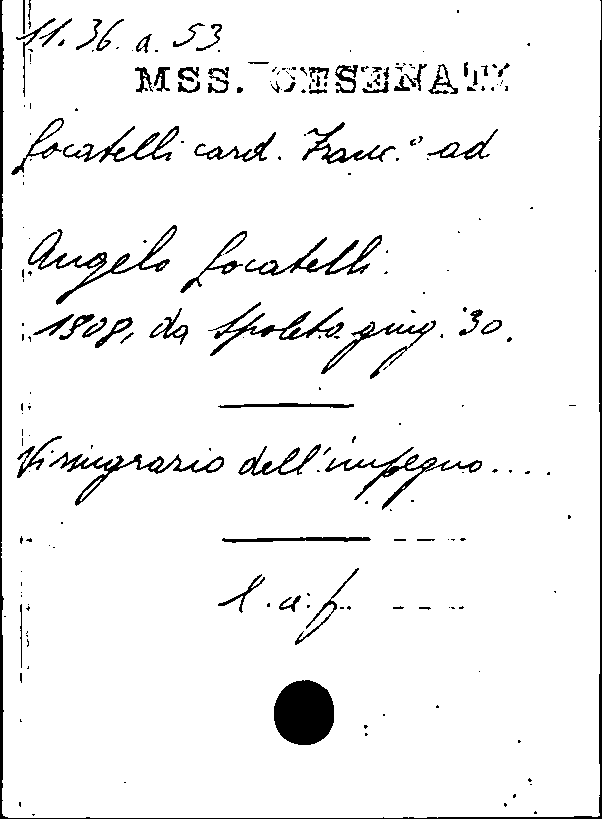 11. 36. a. 53
MSS. CESENATI
Locatelli card. Franc.° ad
Angelo Locatelli.
1808, da Spoleto giug. 30.
Vi ringrazio dell'impegno....
l. a. f.